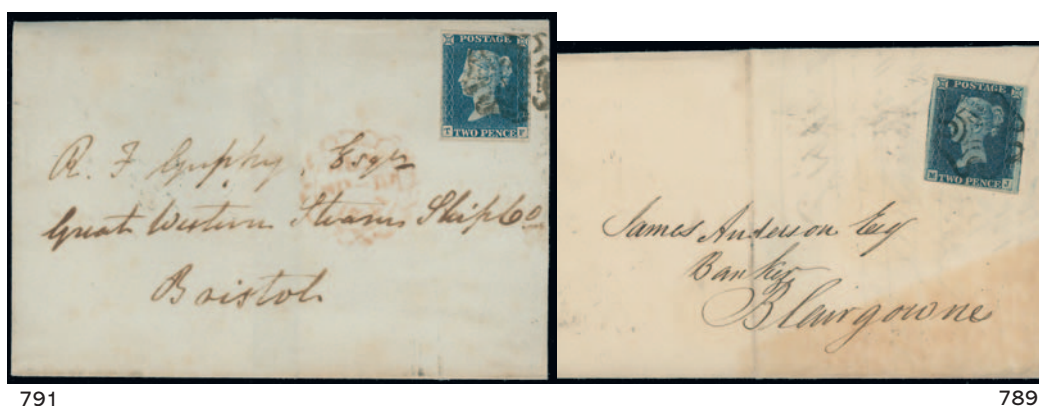 POSTAGE
T F
TWO PENCE
R. F Guppy, Esqr
Great Western Steam Ship Co.
Bristol
791
POSTAGE
M J
TWO PENCE
James Anderson Esq
Banker
Blairgowrie
789